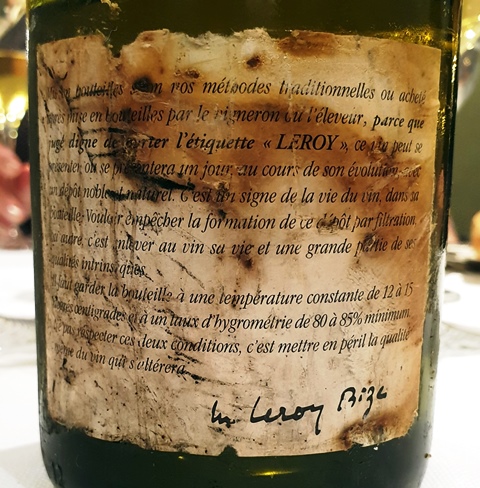 en bouteilles nos méthodes traditionnelles ou acheté
après mise en bouteilles par le vigneron ou l'éleveur, parce que
jugé digne de porter l'étiquette « LEROY », ce vin peut se
présenter, ou se présentera un jour, au cours de son évolution avec
un dépôt noble et naturel. C'est un signe de la vie du vin, dans sa
bouteille. Vouloir empêcher la formation de ce dépôt par filtration
ou autre, c'est enlever au vin sa vie et une grande partie de ses
qualités intrinsèques.
Il faut garder la bouteille à une température constante de 12 à 15
degrés centigrades et à un taux d'hygrométrie de 80 à 85% minimum.
Ne pas respecter ces deux conditions, c'est mettre en péril la qualité
du vin qui s'altérera.
Leroy Bize